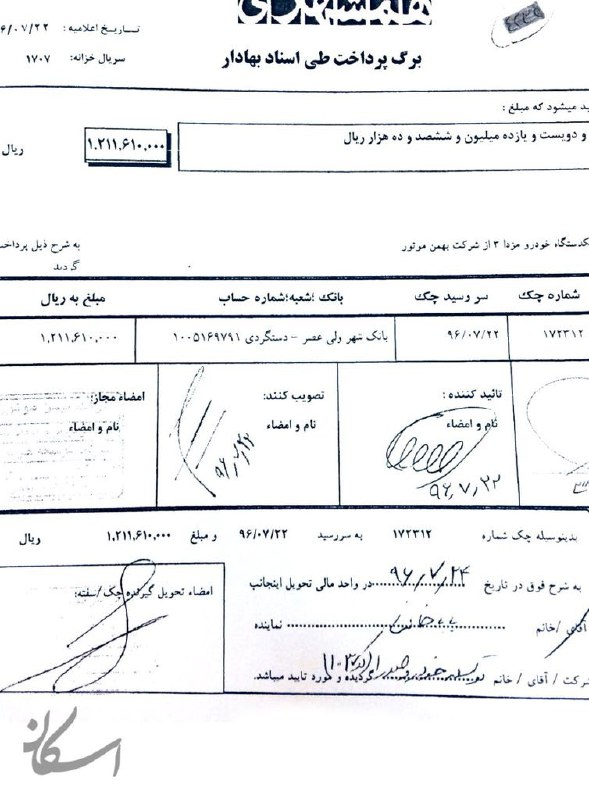 همشهری
برگ پرداخت طی اسناد بهادار
تاریخ اعلامیه: ۶/۰۷/۲۲
سریال خزانه: ۱۷۰۷
ید میشود که مبلغ :
و دویست و یازده میلیون و ششصد و ده هزار ریال
۱،۲۱۱،۶۱۰،۰۰۰ ریال
کدستگاه خودرو مزدا ۳ از شرکت بهمن موتور
به شرح ذیل پرداخت
گردید
شماره چک سر وسید چک بانک ؛شعبه؛شماره حساب مبلغ به ریال
۱۷۲۳۱۲ ۹۶/۰۷/۲۲ بانک شهر ولی عصر - دستگردی ۱۰۰۵۱۶۹۷۹۱ ۱،۲۱۱،۶۱۰،۰۰۰
تائید کننده : تصویب کنند: امضاء مجاز:
نام و امضاء نام و امضاء نام و امضاء
۹۶,۷,۲۲
بدینوسیله چک شماره ۱۷۲۳۱۲ به سررسید ۹۶/۰۷/۲۲ و مبلغ ۱،۲۱۱،۶۱۰،۰۰۰ ریال
به شرح فوق در تاریخ ۹۶/۷/۲۴ در واحد مالی تحویل اینجانب
آقای /خانم نماینده
شرکت / آقای / خانم گردیده و مورد تایید میباشد.
امضاء تحویل گیرنده چک /سفته:
اسکان